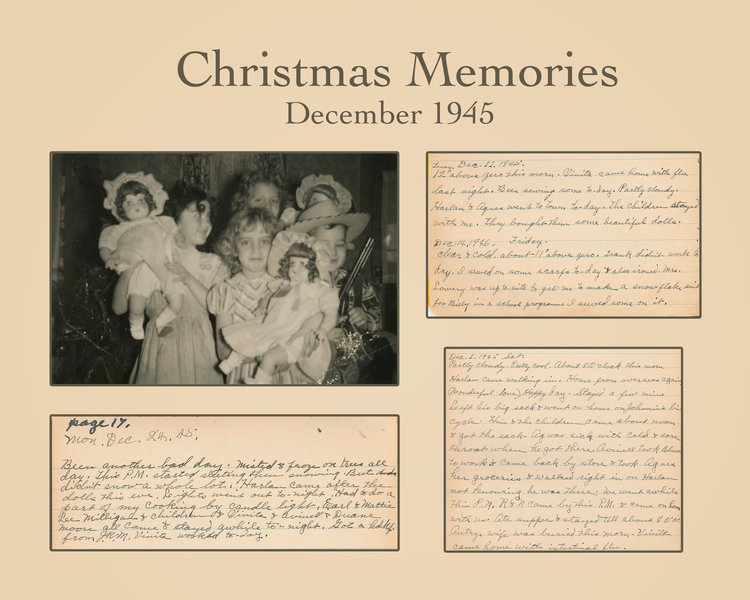 Christmas Memories
December 1945
Tues. Dec. 11, 1945.
12° above zero this morn. Vinita came home with flu
last night. Been sewing some to-day. Partly cloudy.
Harlan & Agnes went to town to-day. The children stayed
with me. They bought them some beautiful dolls.
Dec. 14, 1945. Friday.
Clear & Cold. about 11° above zero. Frank didn't work to
day. I sewed on some scarfs to-day & also ironed. Mrs.
Lowery was up to-nite to get me to make a snowflake suit
for Billy in a school programe I sewed some on it.
Dec. 1. 1945 Sat.
Partly cloudy. Pretty cool. About 8 O'clock this morn
Harlan came walking in. Home from overseas again
(Wonderful Love) Happy day. Stayed a few min.
Left his big sack & went on home on Johnnie's bi
cycle. Him & the children came about noon
& got the sack. Agnes sick with Cold & sore
throat when he got there. Avinell took
to work & came back by store & took Agnes
her groceries & walked right in on Harlan
not knowing he was there. We went awhile
this P.M. & came by this P.M. & come on home
with us. Ate supper & stayed till about 8 O'C
Autrys wife was buried this morn. Vinita
came home with intestinal flu.
page 17.
Mon. Dec. 24. 45.
Been another bad day. Misted & froze on trees all
day. This P.M. started sleeting then snowing But
didn't snow a whole lot. Harlan came after the
dolls this eve. Lights went out to-night. Had to do a
part of my cooking by candle light. Earl & Mattie
Lee Milligan & children & Vinita & Avinell & Duane
Moore all came & stayed awhile to-night. Got a hdkf.
from J.R.M. Vinita worked to-day.